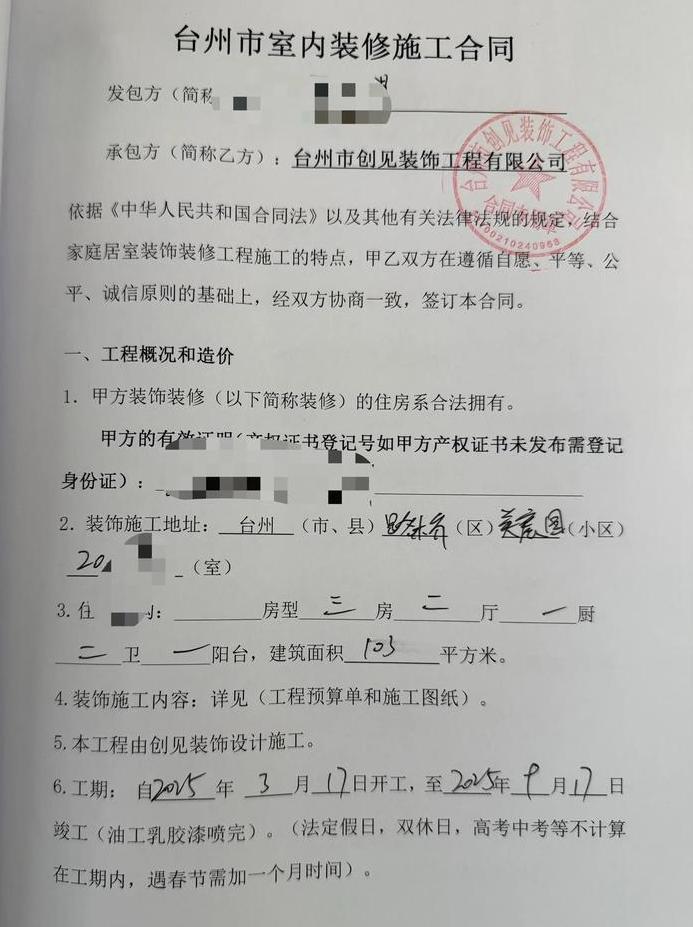 台州市室内装修施工合同
发包方（简称
承包方（简称乙方）：台州市创见装饰工程有限公司
台州市创见装饰工程有限公司
依据《中华人民共和国合同法》以及其他有关法律法规的规定，结合
家庭居室装饰装修工程施工的特点，甲乙双方在遵循自愿、平等、公
平、诚信原则的基础上，经双方协商一致，签订本合同。
一、工程概况和造价
1．甲方装饰装修（以下简称装修）的住房系合法拥有。
甲方的有效证明（产权证书登记号如甲方产权证书未发布需登记
身份证）：
2．装饰施工地址：台州（市、县）路桥（区）（小区）
20（室）
3.住 ：房型 三 房 二 厅 一 厨
二 卫 一 阳台，建筑面积 103 平方米。
4.装饰施工内容：详见（工程预算单和施工图纸）。
5.本工程由创见装饰设计施工。
6.工期：自2025年 3 月 17日开工，至2025年 9 月17日
竣工（油工乳胶漆喷完）。（法定假日，双休日，高考中考等不计算
在工期内，遇春节需加一个月时间）。